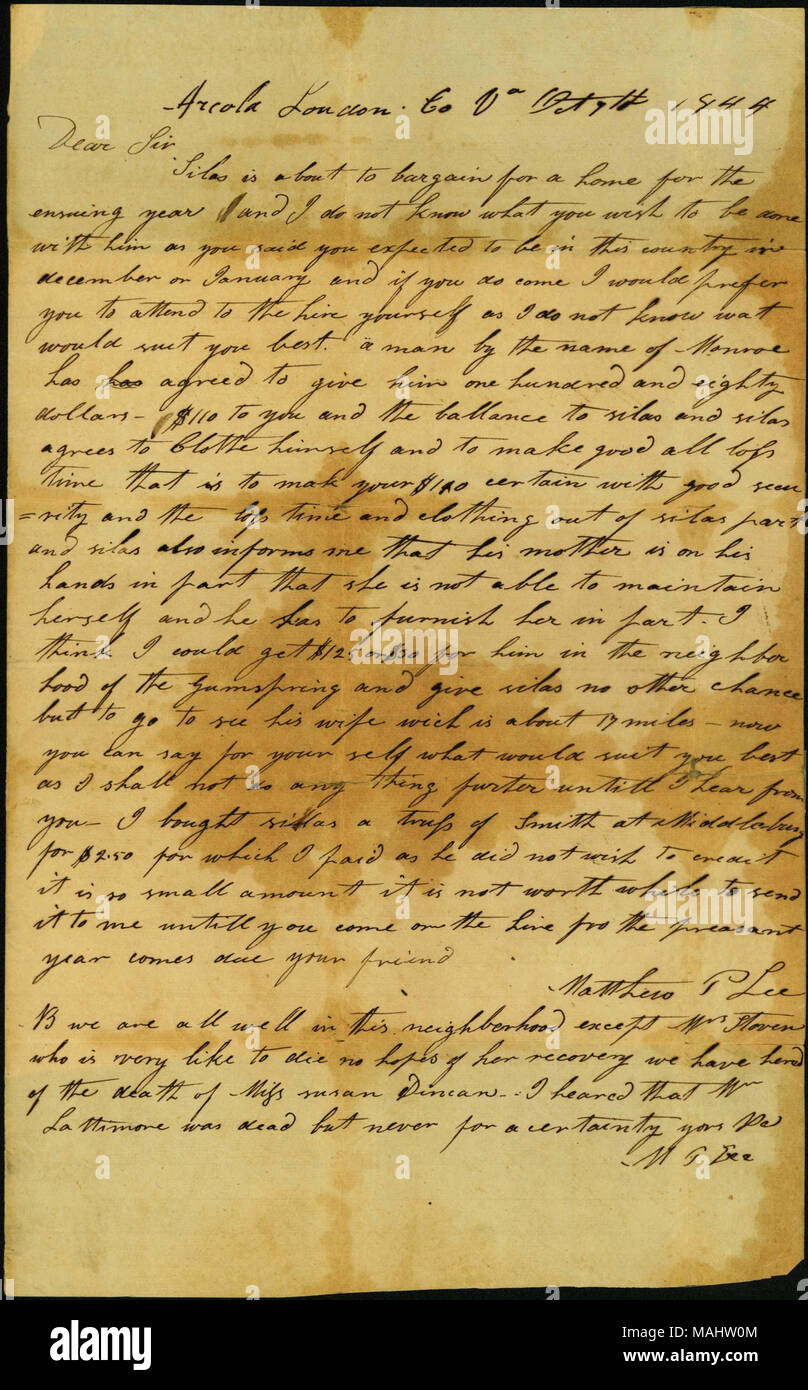 Arcola Loudon. Co Va Oct 7th 1844
Dear Sir
Silas is about to bargain for a home for the
ensuing year and I do not know what you wish to be done
with him as you said you expected to be in this country in
december or January and if you do come I would prefer
you to attend to the hire yourself as I do not know wat
would suit you best. a man by the name of Monroe
has has agreed to give him one hundred and eighty
dollars - $110 to you and the ballance to silas and silas
agrees to Clothe himself and to make good all loss
time that is to make your $110 certain with good secu
=rity and the loss time and clothing out of silas part
and silas also informs me that his mother is on his
hands in part that she is not able to maintain
herself and he has to furnish her in part. I
think I could get $125 or $130 for him in the neighbor
hood of the Gumspring and give silas no other chance
but to go to see his wife wich is about 17 miles - now
you can say for your self what would suit you best
as I shall not do any thing furter untill I hear from
you - I bought silas a truss of Smith at Middleburg
for $2.50 for which I paid as he did not wish to credit
it is so small amount it is not worth while to send
it to me untill you come or the hire fro the preasant
year comes due your friend
Matthew P Lee
NB we are all well in this neighberhood except Mrs
who is very like to die no hopes of her recovery we have herd
of the death of Miss susan Duncan - I heared that Wm
Lattimore was dead but never for a certainty yors &c
M P Lee
alamy
Image ID: MAHW0M
www.alamy.com